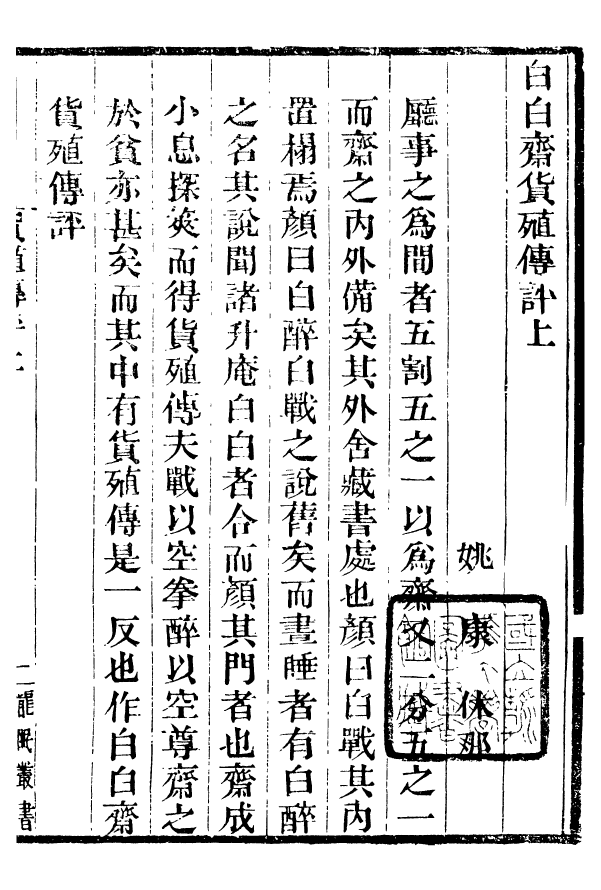 白白齋貨殖傳評上
姚康休那
廳事之爲間者五割五之一以爲齋又二分五之一
而齋之內外備矣其外舍藏書處也顏曰白戰其內
置榻焉顏曰白醉白戰之說舊矣而晝睡者有白醉
之名其說聞諸升庵白白者合而顏其門者也齋成
小息探篋而得貨殖傳夫戰以空拳醉以空尊齋之
於貧亦甚矣而其中有貨殖傳是一反也作白白齋
貨殖傳評
貨殖傳評上
一
龍眠叢書